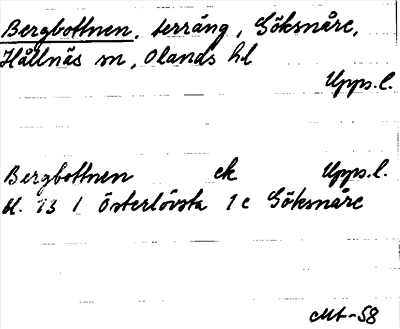 Bergbottnen, terräng, Göksnåre,
Hållnäs sn, Olands hd
Upps.l.
Bergbottnen ek Upps.l.
bl. 13 I Österlövsta 1c Göksnåre
Mt-58